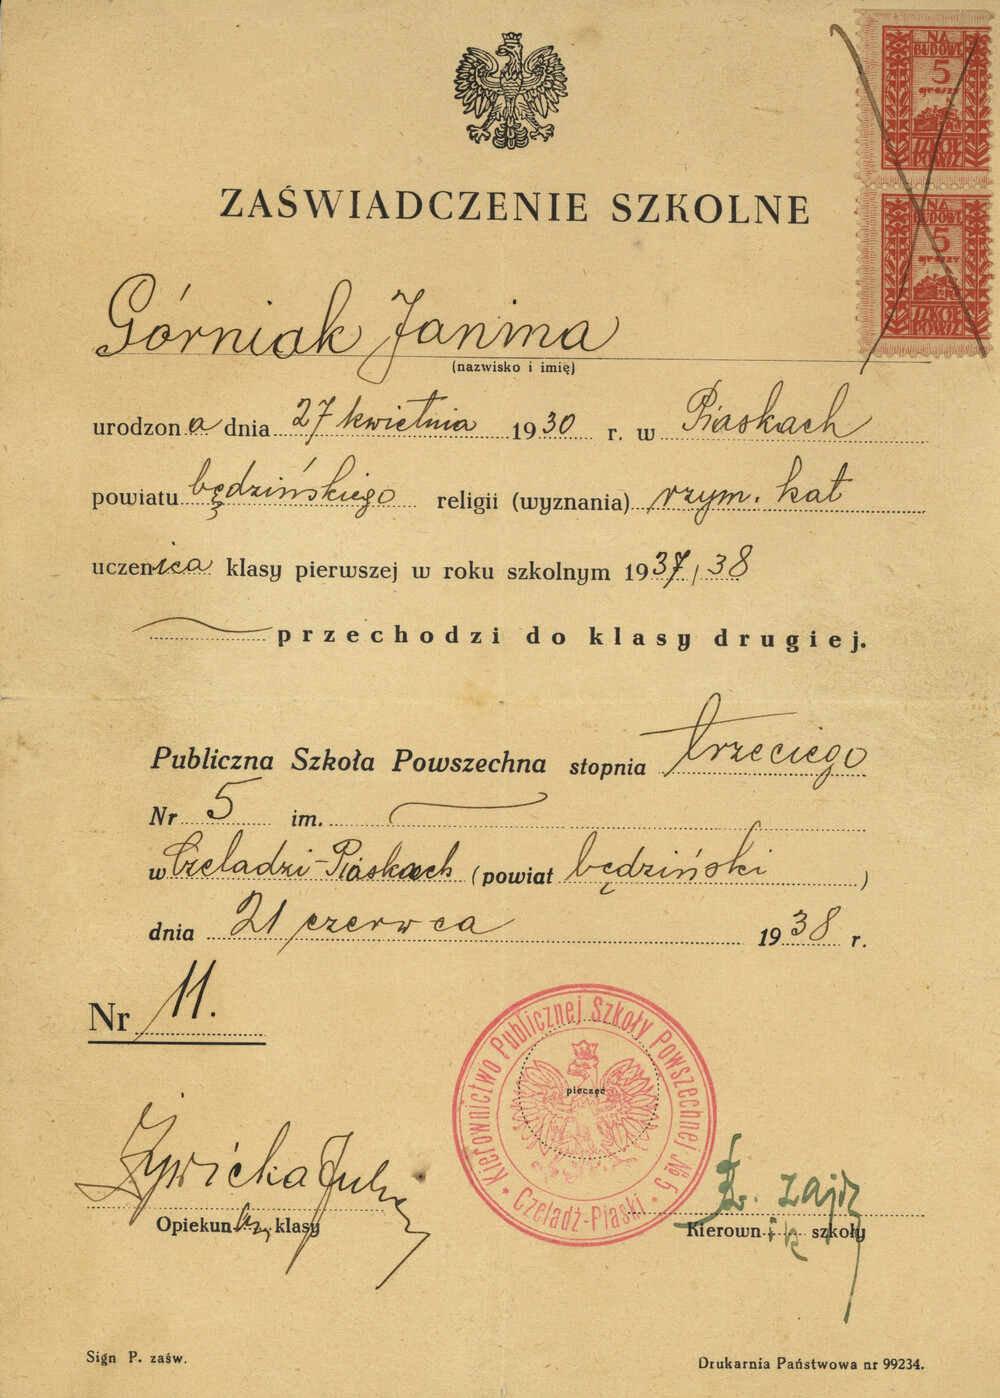 NA
BUDOWĘ
5
groszy
SZKÓŁ
POWSZ
NA
BUDOWĘ
5
groszy
SZKÓŁ
POWSZ
ZAŚWIADCZENIE SZKOLNE
Górniak Janina
(nazwisko i imię)
urodzona dnia 27 kwietnia 1930 r. w Piaskach
powiatu będzińskiego religii (wyznania) rzym. kat
uczenica klasy pierwszej w roku szkolnym 1937/38
przechodzi do klasy drugiej.
Publiczna Szkoła Powszechna stopnia trzeciego
Nr 5 im.
w Czeladzi-Piaskach (powiat będziński)
dnia 21 czerwca 1938 r.
Nr 11.
Kierownictwo Publicznej Szkoły Powszechnej № 5
* Czeladź-Piaski *
pieczęć
Żywicka Julia
Opiekun klasy
Zajdz
Kierownik szkoły
Sign P. zaśw.
Drukarnia Państwowa nr 99234.